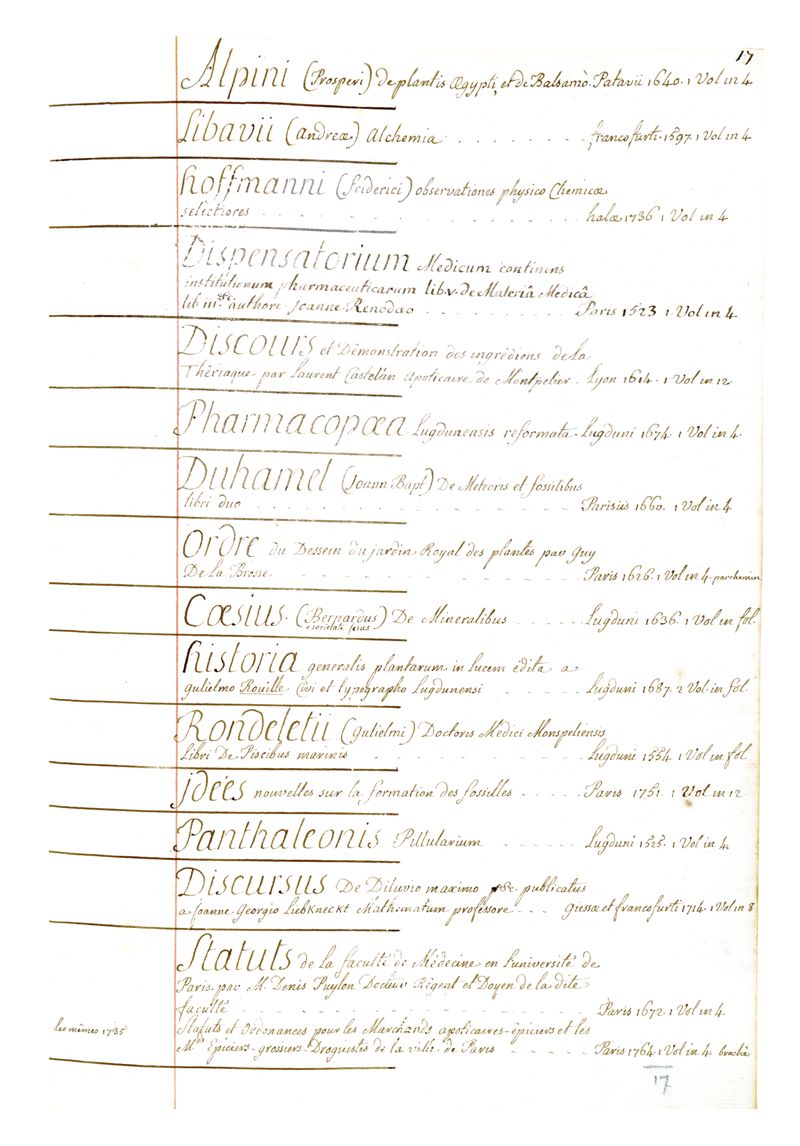 17
Alpini (Prosperi) de plantis Œgypti, et de Balsamo. Patavii 1640. 1 Vol in 4
Libavii (andreæ) alchemia . . . . . . . . francofurti. 1597. 1 Vol in 4
hoffmanni (friderici) observationes physico Chemicæ
selectiores . . . . . . . . halæ 1736. 1 Vol in 4
Dispensatorium Medicum continens
institutionum pharmaceuticarum lib. v. De Materiâ Medicâ
lib III. &c. authore Joanne Renodæo . . . . . . . . Paris 1523 1 Vol in 4.
Discours et Démonstration des ingrédiens de La
Thériaque par Laurent Castelan apoticaire de Montpelier. Lyon 1614. 1 Vol in 12.
Pharmacopœa Lugdunensis reformata. Lugduni 1674. 1 Vol in 4.
Duhamel (Joann Bapt) De Meteoris et fossilibus
libri duo . . . . . . . . Parisiis 1660. 1 Vol in 4
Ordre du Dessein du jardin Royal des plantes par Guy
De La Brosse . . . . . . . . Paris 1626. 1 Vol in 4. parchemin
Cœsius. (Bernardus) De Mineralibus . . . . . Lugduni 1636. 1 Vol in fol.
e societate jesus
historia generalis plantarum in lucem edita a
gulielmo Rouille Civi et typographo Lugdunensi . . . . . Lugduni 1687. 2 Vol. in fol.
Rondeletii (gulielmi) Doctoris Medici Monspeliensis
Libri De Piscibus marinis . . . . . . . . Lugduni 1554 1 Vol in fol
jdées nouvelles sur la formation des fossilles . . . . Paris 1751. 1 Vol in 12
Panthaleonis Pillularium . . . . . . Lugduni 1525. 1 Vol in 4.
Discursus De Diluvio maximo &c publicatus
a Joanne Georgio Liebknecht Mathematum professore . . . Giessæ et francofurti 1714. 1 Vol in 8
Statuts de la faculté de Médecine en Luniversité de
Paris par M. Denis Puylon Docteur Régent et Doyen de la dite
faculté . . . . . . . . Paris 1672. 1 Vol in 4.
Les mêmes 1735
Statuts et Ordonances pour les Marchands apoticaires-épiciers et les
Mds Epiciers-grossiers-Droguistes de la ville de Paris . . . . . Paris 1764. 1 Vol in 4. broché
17